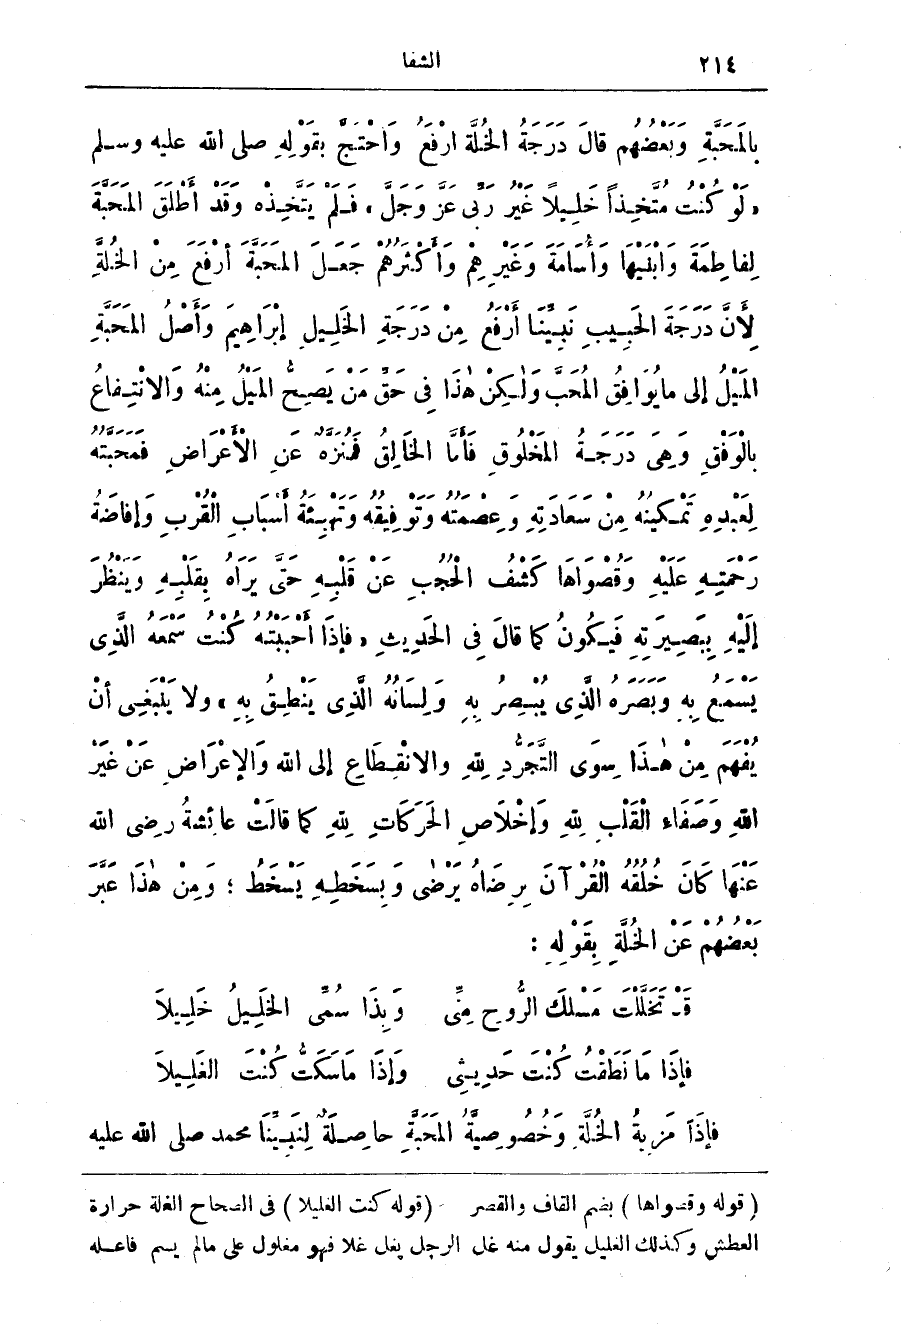 ٢١٤
الشفا
بِالمَحَبَّةِ وَبَعْضُهُم قالَ دَرَجَةُ الخُلَّةِ ارْفَعُ وَاحْتَجَّ بِقَوْلِهِ صلى الله عليه وسلم
« لَوْ كُنْتُ مُتَّخِذاً خَلِيلاً غَيْرَ رَبِّى عَزَّ وَجَلَّ » فَلَمْ يَتَّخِذْهُ وَقَدْ أَطْلَقَ المَحَبَّةَ
لِفاطِمَةَ وَابْنَيْهَا وَأُسَامَةَ وَغَيْرِهِمْ وَأَكْثَرُهُمْ جَعَلَ المَحَبَّةَ أَرْفَعَ مِنْ الخُلَّةِ
لِأَنَّ دَرَجَةَ الحَبِيبِ نَبِيِّنَا أَرْفَعُ مِنْ دَرَجَةِ الخَلِيلِ إِبْرَاهِيمَ وَأَصْلُ المَحَبَّةِ
المَيْلُ إلى مايُوَافِقُ المُحِبَّ وَلٰكِنْ هٰذَا فِى حَقِّ مَنْ يَصِحُّ المَيْلُ مِنْهُ وَالانْتِفاعُ
بِالْوَفْقِ وَهِىَ دَرَجَةُ المَخْلُوقِ فَأَمَّا الخَالِقُ فَمُنَزَّهٌ عَنِ الأَعْرَاضِ فَمَحَبَّتُهُ
لِعَبْدِهِ تَمْكِينُهُ مِنْ سَعَادَتِهِ وَعِصْمَتُهُ وَتَوْفِيقُهُ وَتَهْيِئَةُ أَسْبَابِ القُرْبِ وَإفاضَةُ
رَحْمَتِهِ عَلَيْهِ وَقُصْوَاهَا كَشْفُ الحُجُبِ عَنْ قَلْبِهِ حَتَّى يَرَاهُ بِقَلْبِهِ وَيَنْظُرَ
إِلَيْهِ بِبَصِيرَتِهِ فَيَكُونُ كما قالَ فِى الحَدِيثِ « فإذَا أَحْبَبْتُهُ كُنْتُ سَمْعَهُ الَّذِى
يَسْمَعُ بِهِ وَبَصَرَهُ الَّذِى يُبْصِرُ بِهِ وَلِسَانُهُ الَّذِى يَنْطِقُ بِهِ » ولا يَنْبَغِى أنْ
يُفْهَمَ مِنْ هٰذَا سِوَى التَّجَرُّدِ لِلّٰهِ والانْقِطَاعِ إلى الله وَالإِعْرَاضِ عَنْ غَيْرِ
اللهِ وَصَفَاءِ الْقَلْبِ لِلّٰهِ وَإخْلَاصِ الحَرَكَاتِ لِلّٰهِ كما قالَتْ عائِشةُ رضى الله
عَنْهَا كَانَ خُلُقُهُ الْقُرْآنَ بِرِضَاهُ يَرْضَى وَبِسَخَطِهِ يَسْخَطُ ؛ وَمِنْ هٰذَا عَبَّرَ
بَعْضُهُمْ عَنْ الخُلَّةِ بِقَوْلِهِ :
قَـدْ تَخَلَّلْتَ مَسْلَكَ الرُّوحِ مِنِّى وَبِذَا سُمِّىَ الخَلِيلُ خَلِيلاَ
فإذَا مَا نَطَقْتُ كُنْتَ حَدِيثِى وَإذَا مَاسَكَتُّ كُنْتَ الغَلِيلاَ
فإذَا مَزِيةُ الخُلَّةِ وَخُصُوصِيَّةُ المَحَبَّةِ حاصِلَةٌ لِنَبِيِّنَا محمد صلى الله عليه
( قوله وقصواها ) بضم القاف والقصر (قوله كنت الغليلا ) فى الصحاح الغلة حرارة
العطش وكذلك الغليل يقول منه غل الرجل يغل غلا فهو مغلول على مالم يسم فاعله